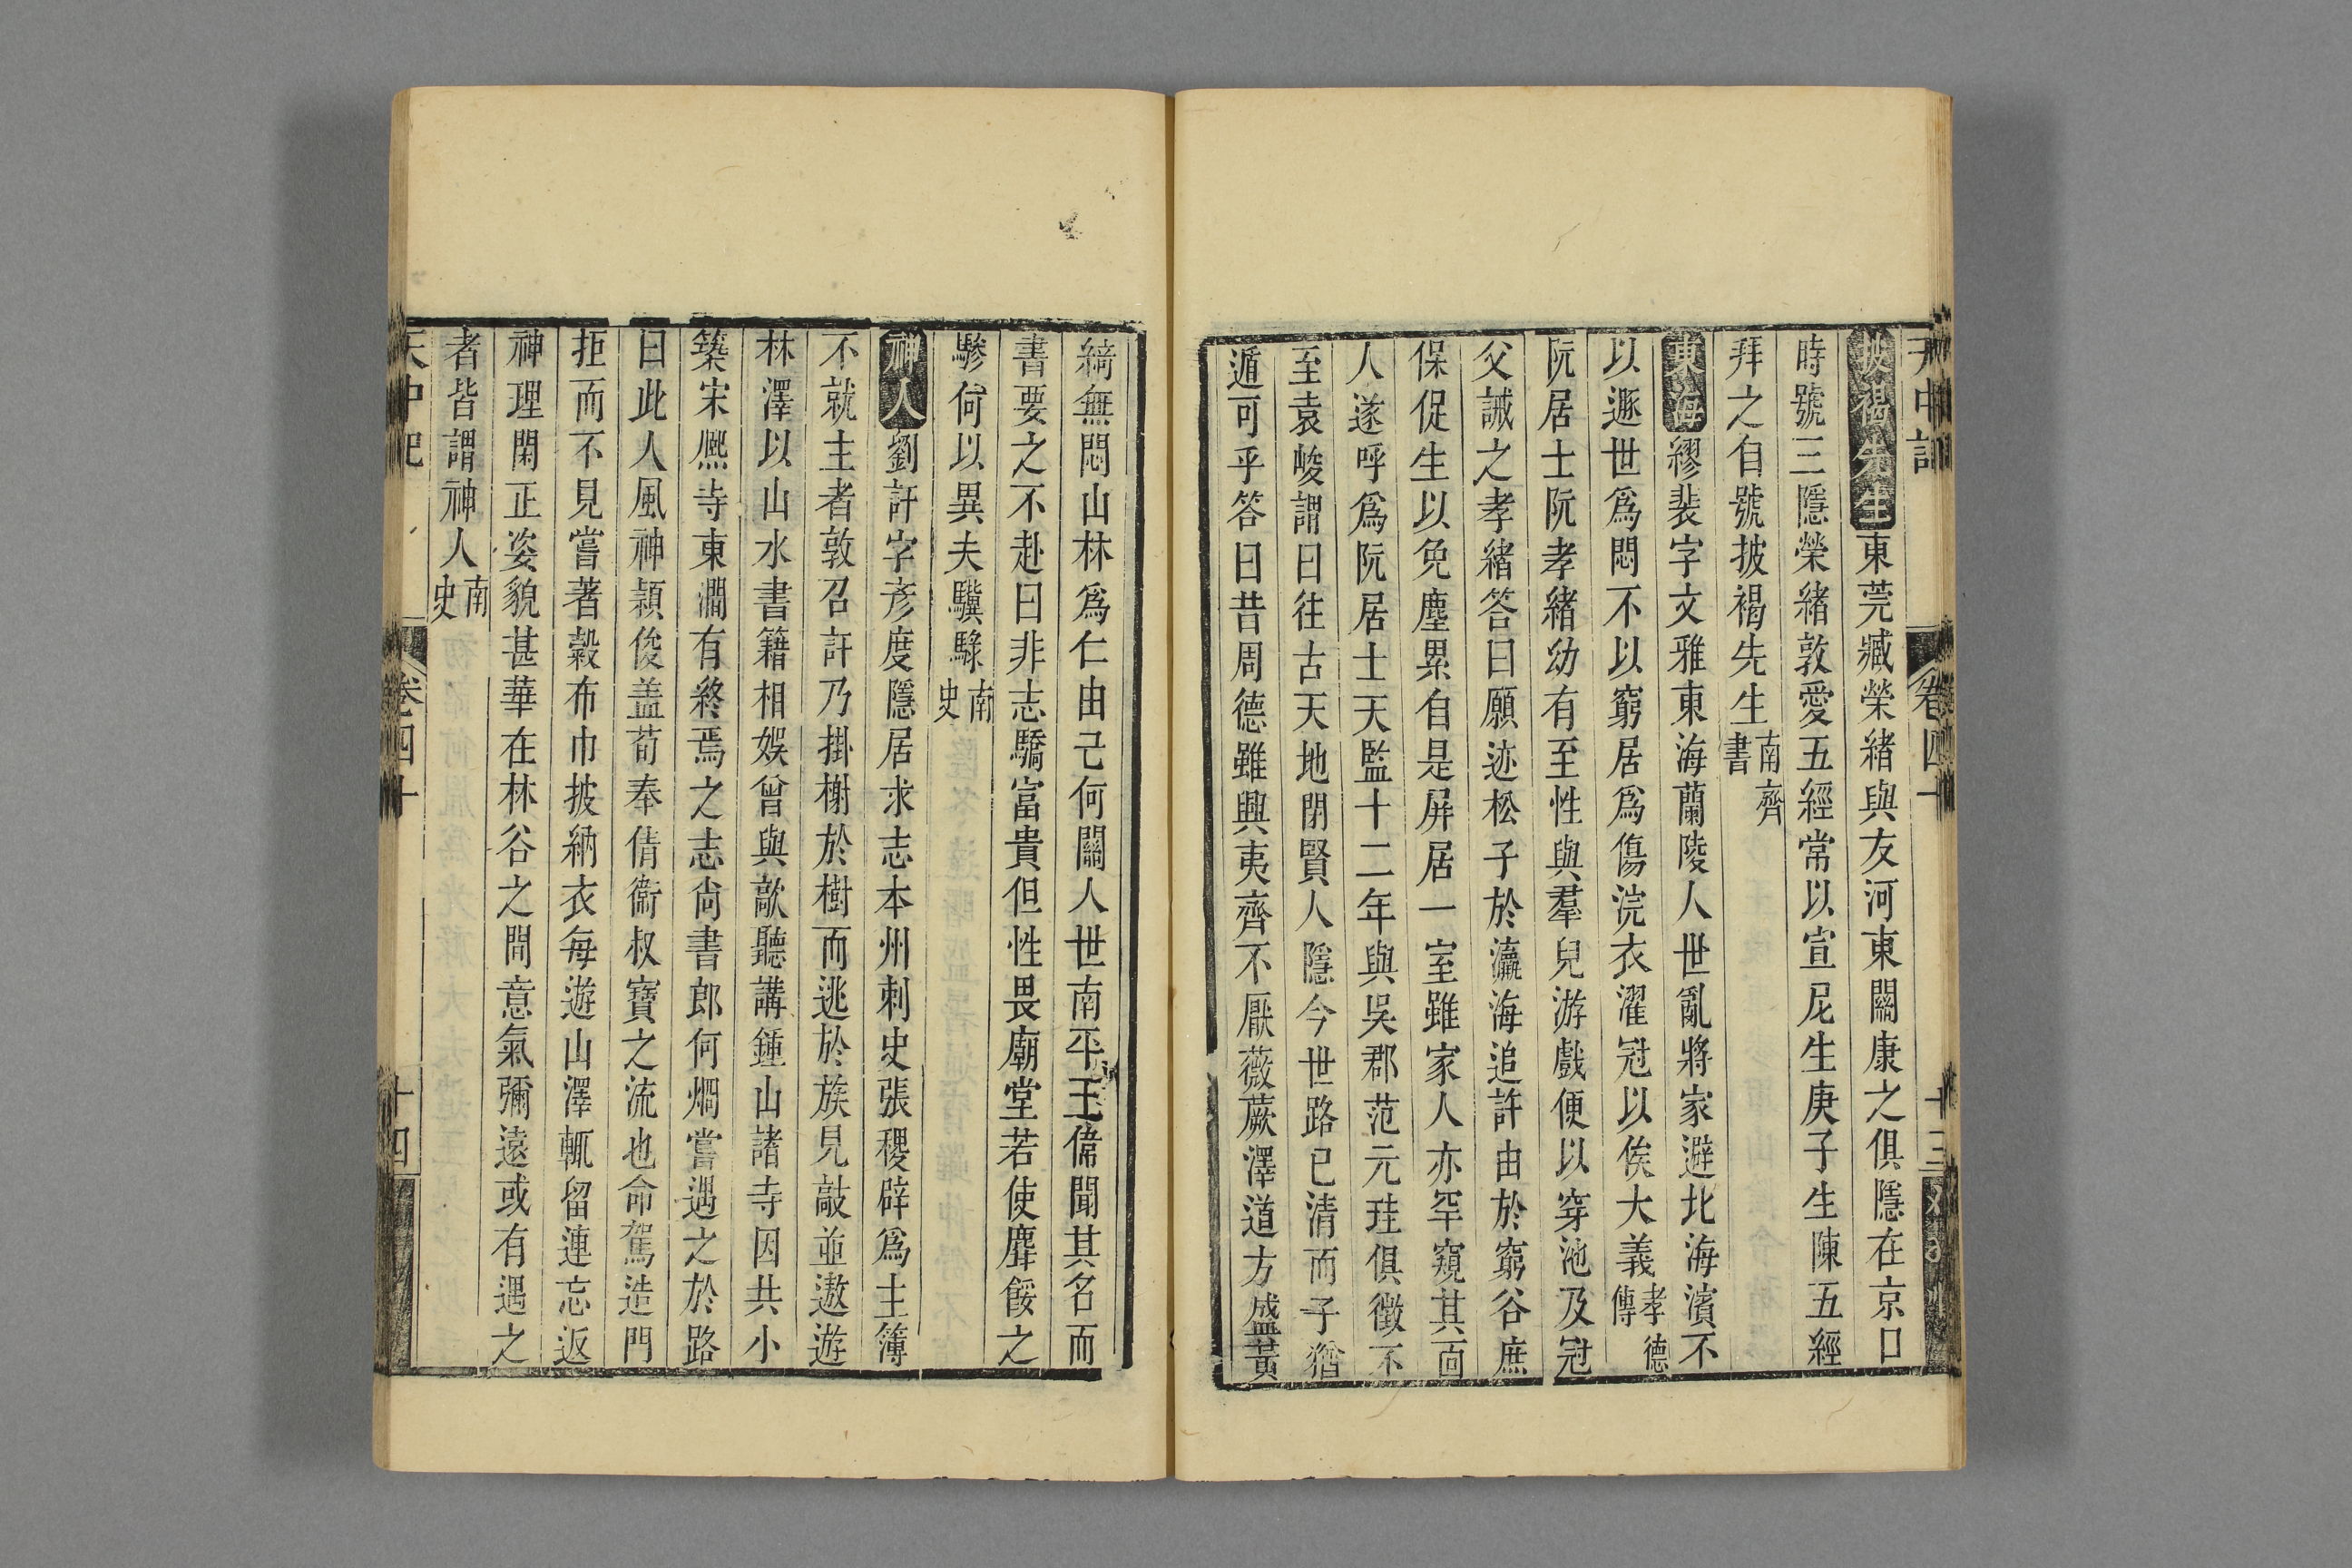 天中記
卷四十
十三
披褐先生東莞臧榮緒與友河東關康之俱隱在京口
時號三隱榮緒敦愛五經常以宣尼生庚子生陳五經
拜之自號披褐先生南齊書
東海繆裴字文雅東海蘭陵人世亂將家避北海濱不
以遯世爲悶不以窮居爲傷浣衣濯冠以俟大義孝德傳
阮居士阮孝緒幼有至性與羣兒游戲便以穿池及冠
父誡之孝緒答曰願迹松子於瀛海追許由於窮谷庶
保促生以免塵累自是屏居一室雖家人亦罕窺其面
人遂呼爲阮居士天監十二年與吳郡范元珪俱徵不
至袁峻謂曰往古天地閉賢人隱今世路已清而子猶
遁可乎答曰昔周德雖興夷齊不厭薇蕨澤道方盛黃
綺無悶山林爲仁由己何關人世南平王偉聞其名而
書要之不赴曰非志驕富貴但性畏廟堂若使麏餒之
驂何以異夫驥騄南史
神人劉訏字彥度隱居求志本州刺史張稷辟爲主簿
不就主者敦召訏乃掛檄於樹而逃於族兄敲並遨遊
林澤以山水書籍相娛曾與歊聽講鍾山諸寺因共小
築宋熈寺東澗有終焉之志尙書郎何烱嘗遇之於路
曰此人風神穎俊盖荀奉倩衞叔寶之流也命駕造門
拒而不見嘗著榖布巾披納衣每遊山澤輒留連忘返
神理閑正姿貌甚華在林谷之間意氣彌遠或有遇之
者皆謂神人南史
天中記
卷四十
十四